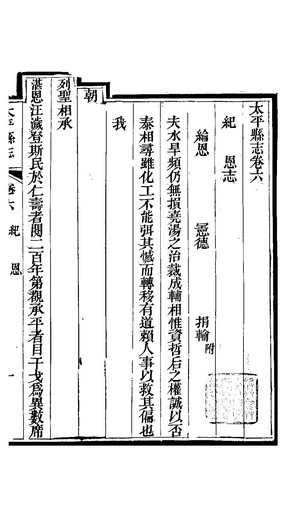 太平縣志卷六
紀恩志
綸恩 憲德 捐輸附
夫水旱頻仍無損堯湯之治裁成輔相惟資哲后之權誠以否
泰相尋雖化工不能弭其憾而轉移有道賴人事以救其偏也
我
朝
列聖相承
湛恩汪濊登斯民於仁壽者閱二百年第觀承平者目干戈為異數席
太平縣志 卷六 紀恩 一